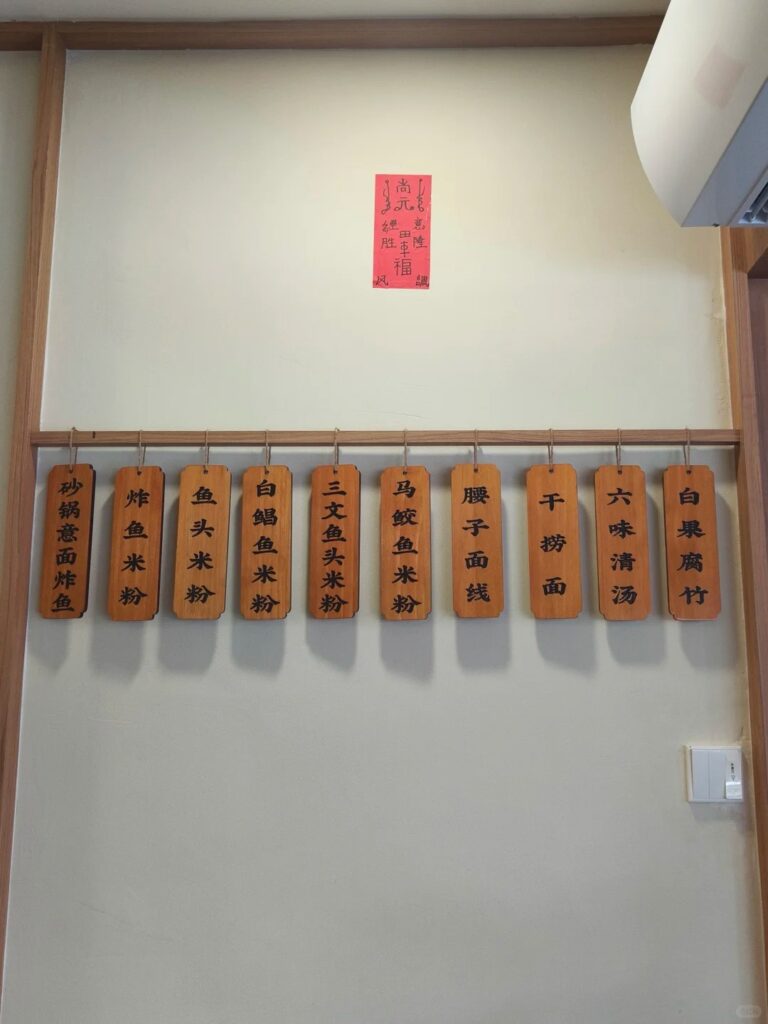 尚元
惠隆
继胜
田车福
风
调
砂锅意面炸鱼
炸鱼米粉
鱼头米粉
白鲳鱼米粉
三文鱼头米粉
马鲛鱼米粉
腰子面线
干捞面
六味清汤
白果腐竹